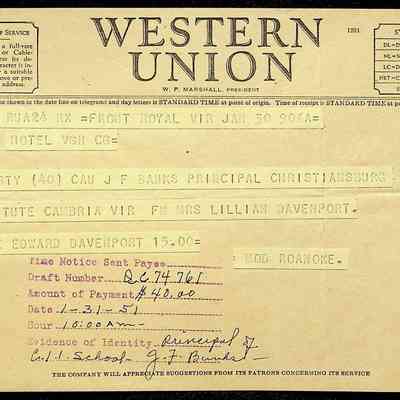 OF SERVICE
WESTERN
UNION
1201
W. P. MARSHALL, PRESIDENT
shown in the date line on telegrams and day letters is STANDARD TIME at point of origin. Time of receipt is STANDARD TIME at
RUA24 RX =FRONT ROYAL VIR JAN 30 906A=
HOTEL VGH CG=
STY (40) CAU J F BANKS PRINCIPAL CHRISTIANSBURG
TUTE CAMBRIA VIR FM MRS LILLIAN DAVENPORT.
EDWARD DAVENPORT 15.00=
MOD ROANOKE.
Time Notice Sent Payee
Draft Number D.C. 74761
Amount of Payment $40.00
Date 1-31-51
Hour 10:00 am-
Evidence of Identity Principal of
C.I.I. School- J.F. Banks-
THE COMPANY WILL APPRECIATE SUGGESTIONS FROM ITS PATRONS CONCERNING ITS SERVICE